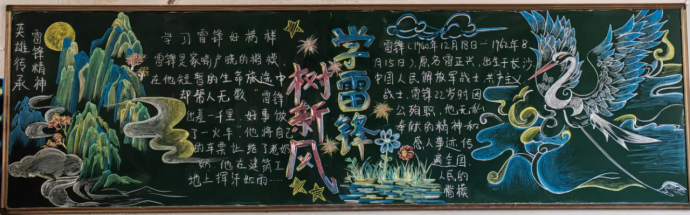 英雄传承
雷锋精神
学习雷锋好榜样
雷锋是家喻户晓的楷模
在他短暂的生命旅途中
却帮人无数"雷锋
出差一千里,好事做
了一火车"他将自己
的车票让给了老奶
奶,他在建筑工
地上挥汗如雨......
学雷锋
树新风
雷锋(1940年12月18日—1962年8
月15日),原名雷正兴,出生于长沙
中国人民解放军战士共产主义
战士,雷锋22岁时因
公殉职,他无私
奉献的精神和
感人事迹,传
遍全国
人民的
楷模